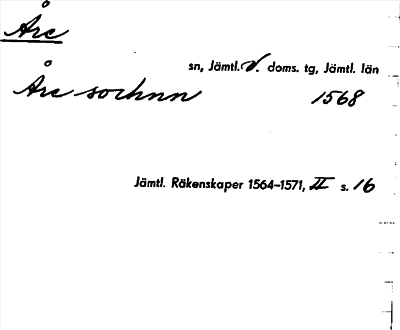 Åre
sn, Jämtl. v. doms. tg, Jämtl. län
Åre sochnn 1568
Jämtl. Räkenskaper 1564–1571, II s. 16